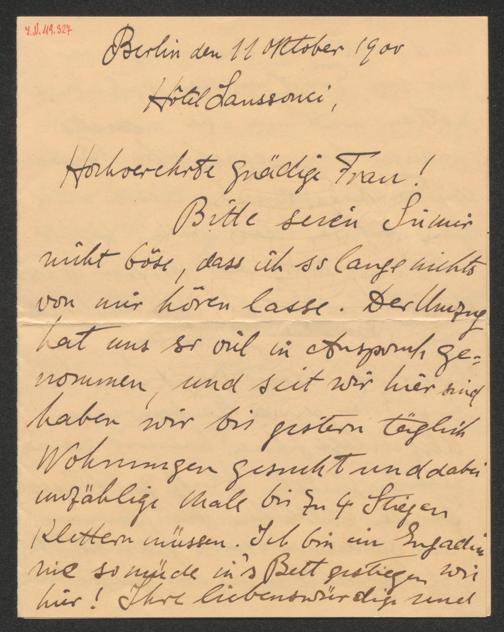 I.N. 119.327
Berlin den 11 Oktober 1900
Hôtel Sanssouci,
Hochverehrte gnädige Frau!
Bitte seien Sie mir
nicht böse, dass ich so lange nichts
von mir hören lasse. Der Umzug
hat uns so viel in Anspruch ge=
nommen, und seit wir hier sind
haben wir bis gestern täglich
Wohnungen gesucht und dabei
unzählige Male bis zu 4 Stiegen
klettern müssen. Ich bin im Engadin
nie so müde in's Bett gestiegen wie
hier! Ihre liebenswürdige und